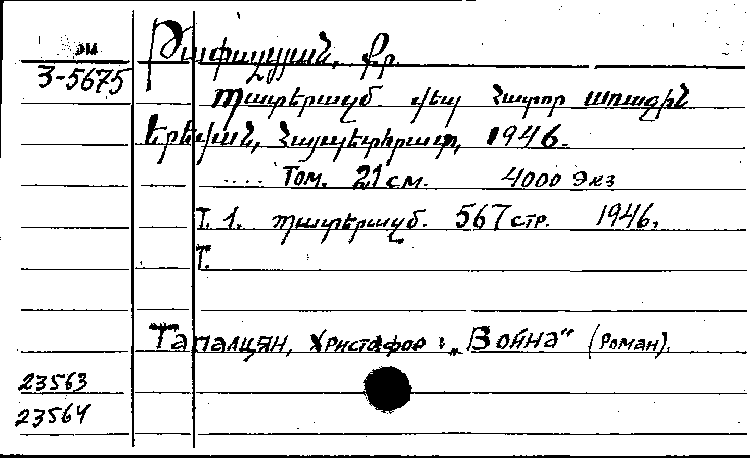 Թափալցյան, Քր.
3-5675
Պատերազմ. վեպ Հատոր առաջին
Երեվան, Հայպետհրատ, 1946.
.... Том. 21 см. 4000 Экз
Т. 1. Պատերազմ. 567 стр. 1946.
Т.
Тапалцян, Христафор: „Война“ (Роман).
23563
23564